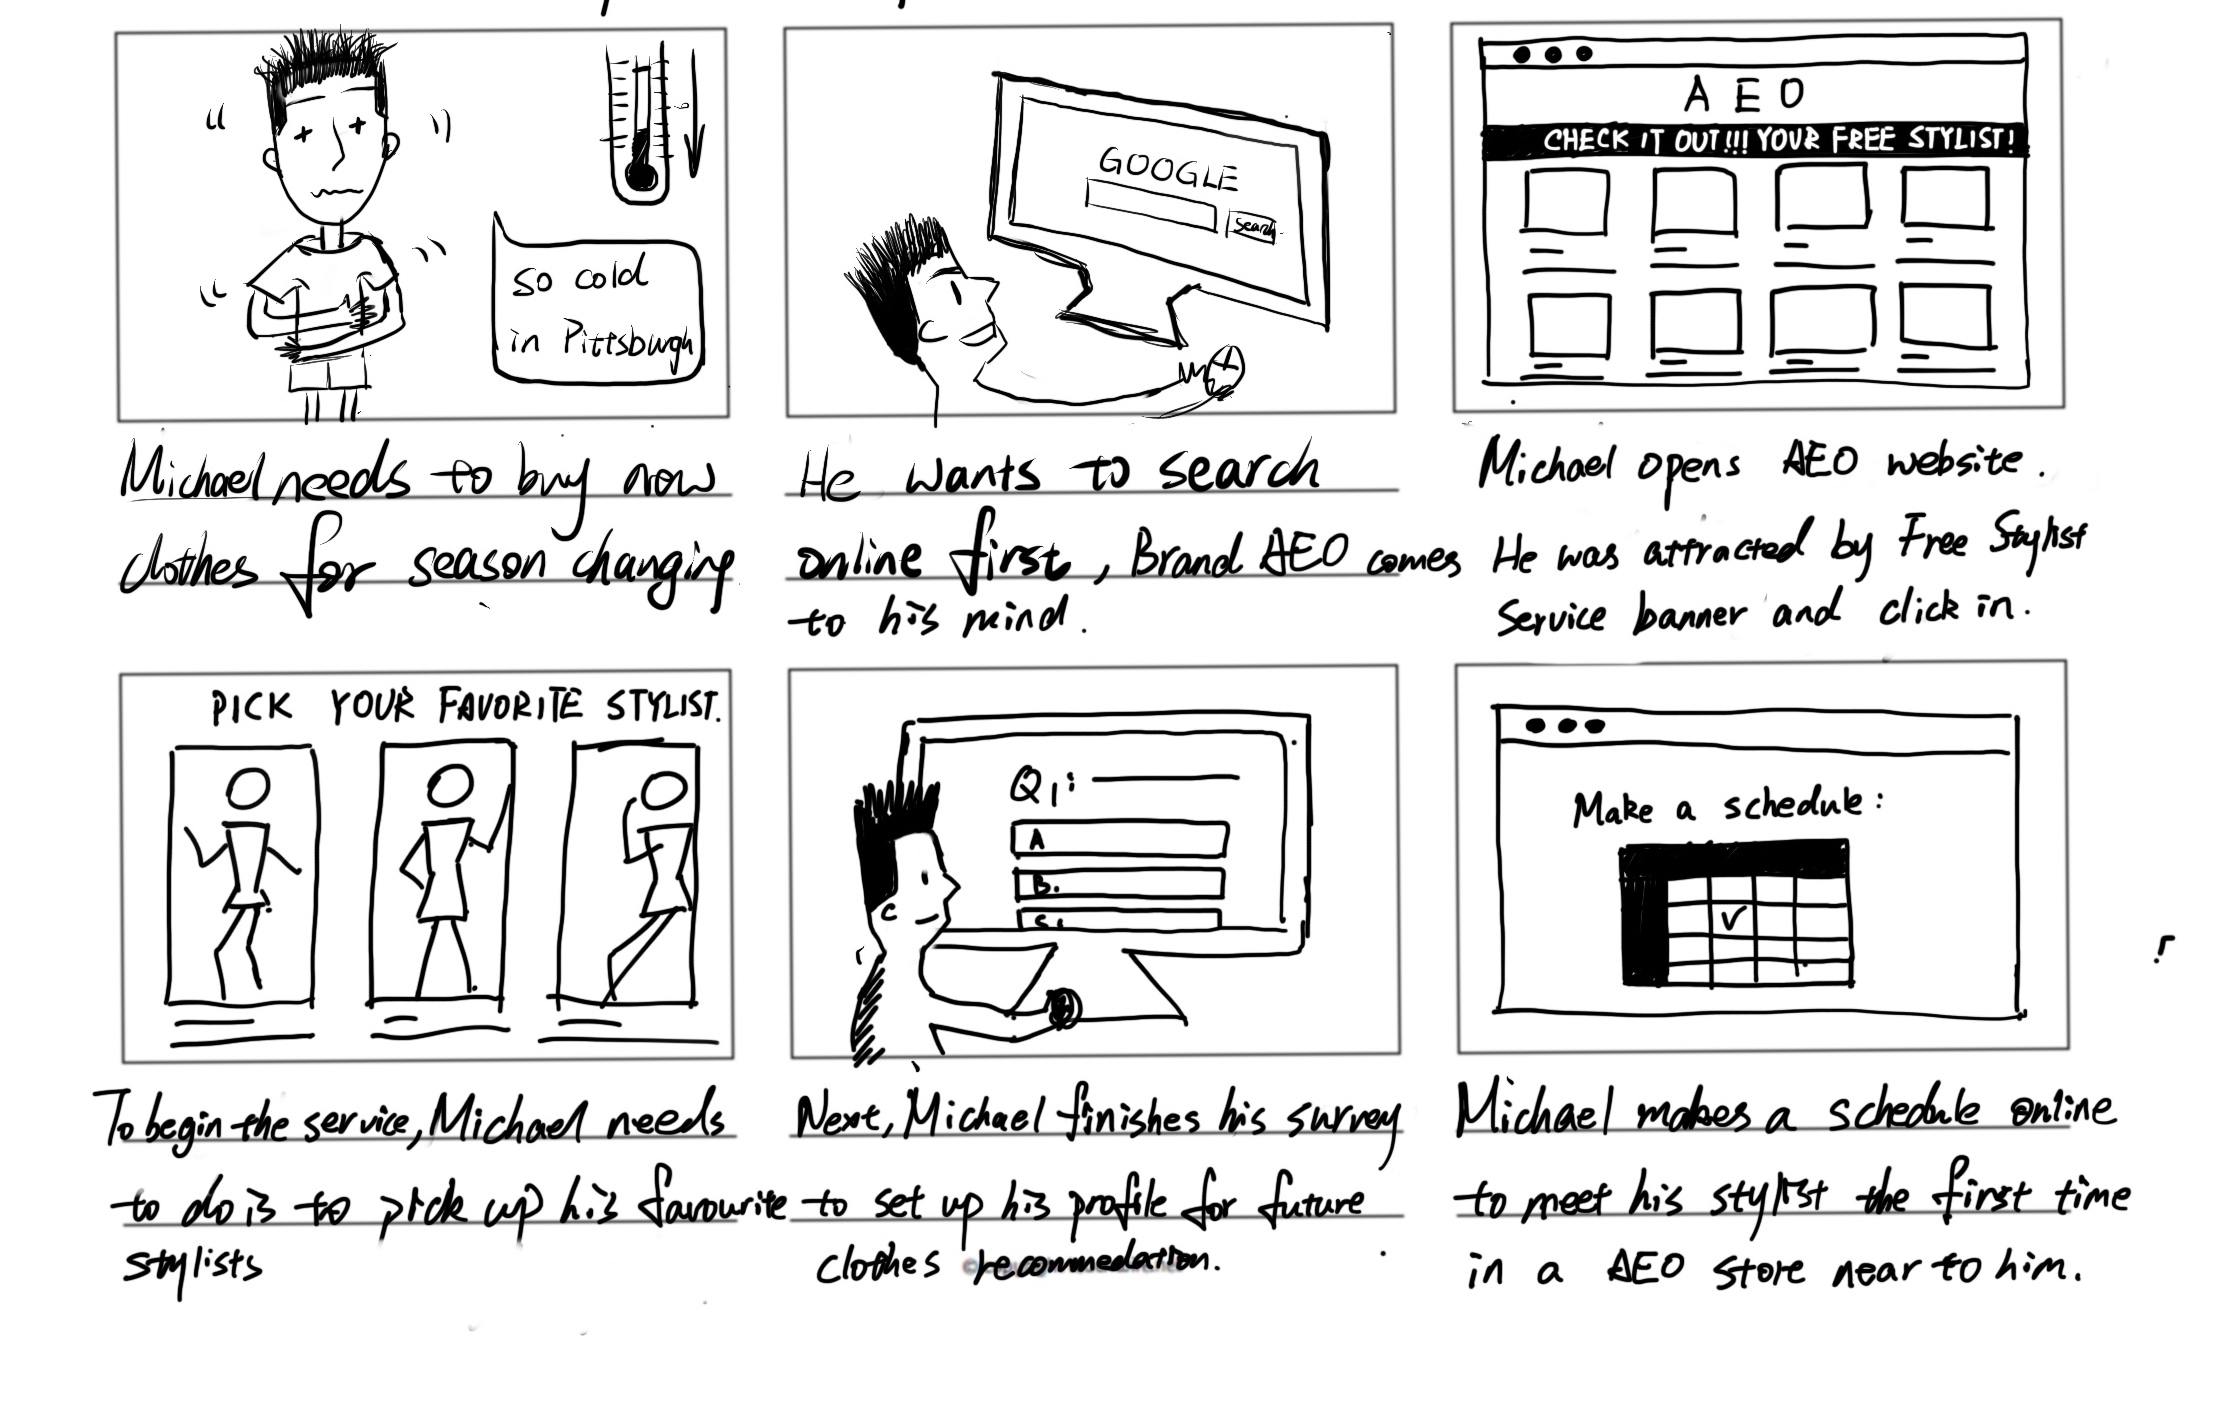 so cold
in Pittsburgh
Michael needs to buy now
clothes for season changing
GOOGLE
Search
He wants to search
online first, Brand AEO comes
to his mind.
AEO
CHECK IT OUT!!! YOUR FREE STYLIST!
Michael opens AEO website.
He was attracted by Free Stylist
Service banner and click in.
PICK YOUR FAVORITE STYLIST.
To begin the service, Michael needs
to do is to pick up his favourite
stylists
Q1:
A
B.
Next, Michael finishes his survey
to set up his profile for future
clothes recommedation.
Make a schedule:
Michael makes a schedule online
to meet his stylist the first time
in a AEO store near to him.